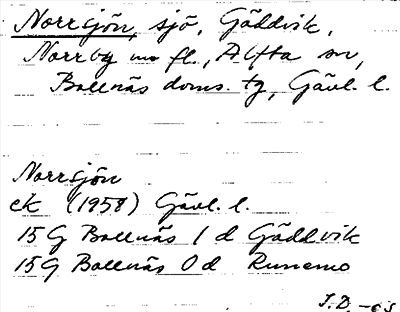 Norrsjön, sjö, Gäddvik,
Norrby m fl., Alfta sn,
Bollnäs doms. tg, Gävl. l.
Norrsjön
ek (1958) Gävl. l.
15G Bollnäs 1 d Gäddvik
15G Bollnäs 0 d Runemo
I.D. -65